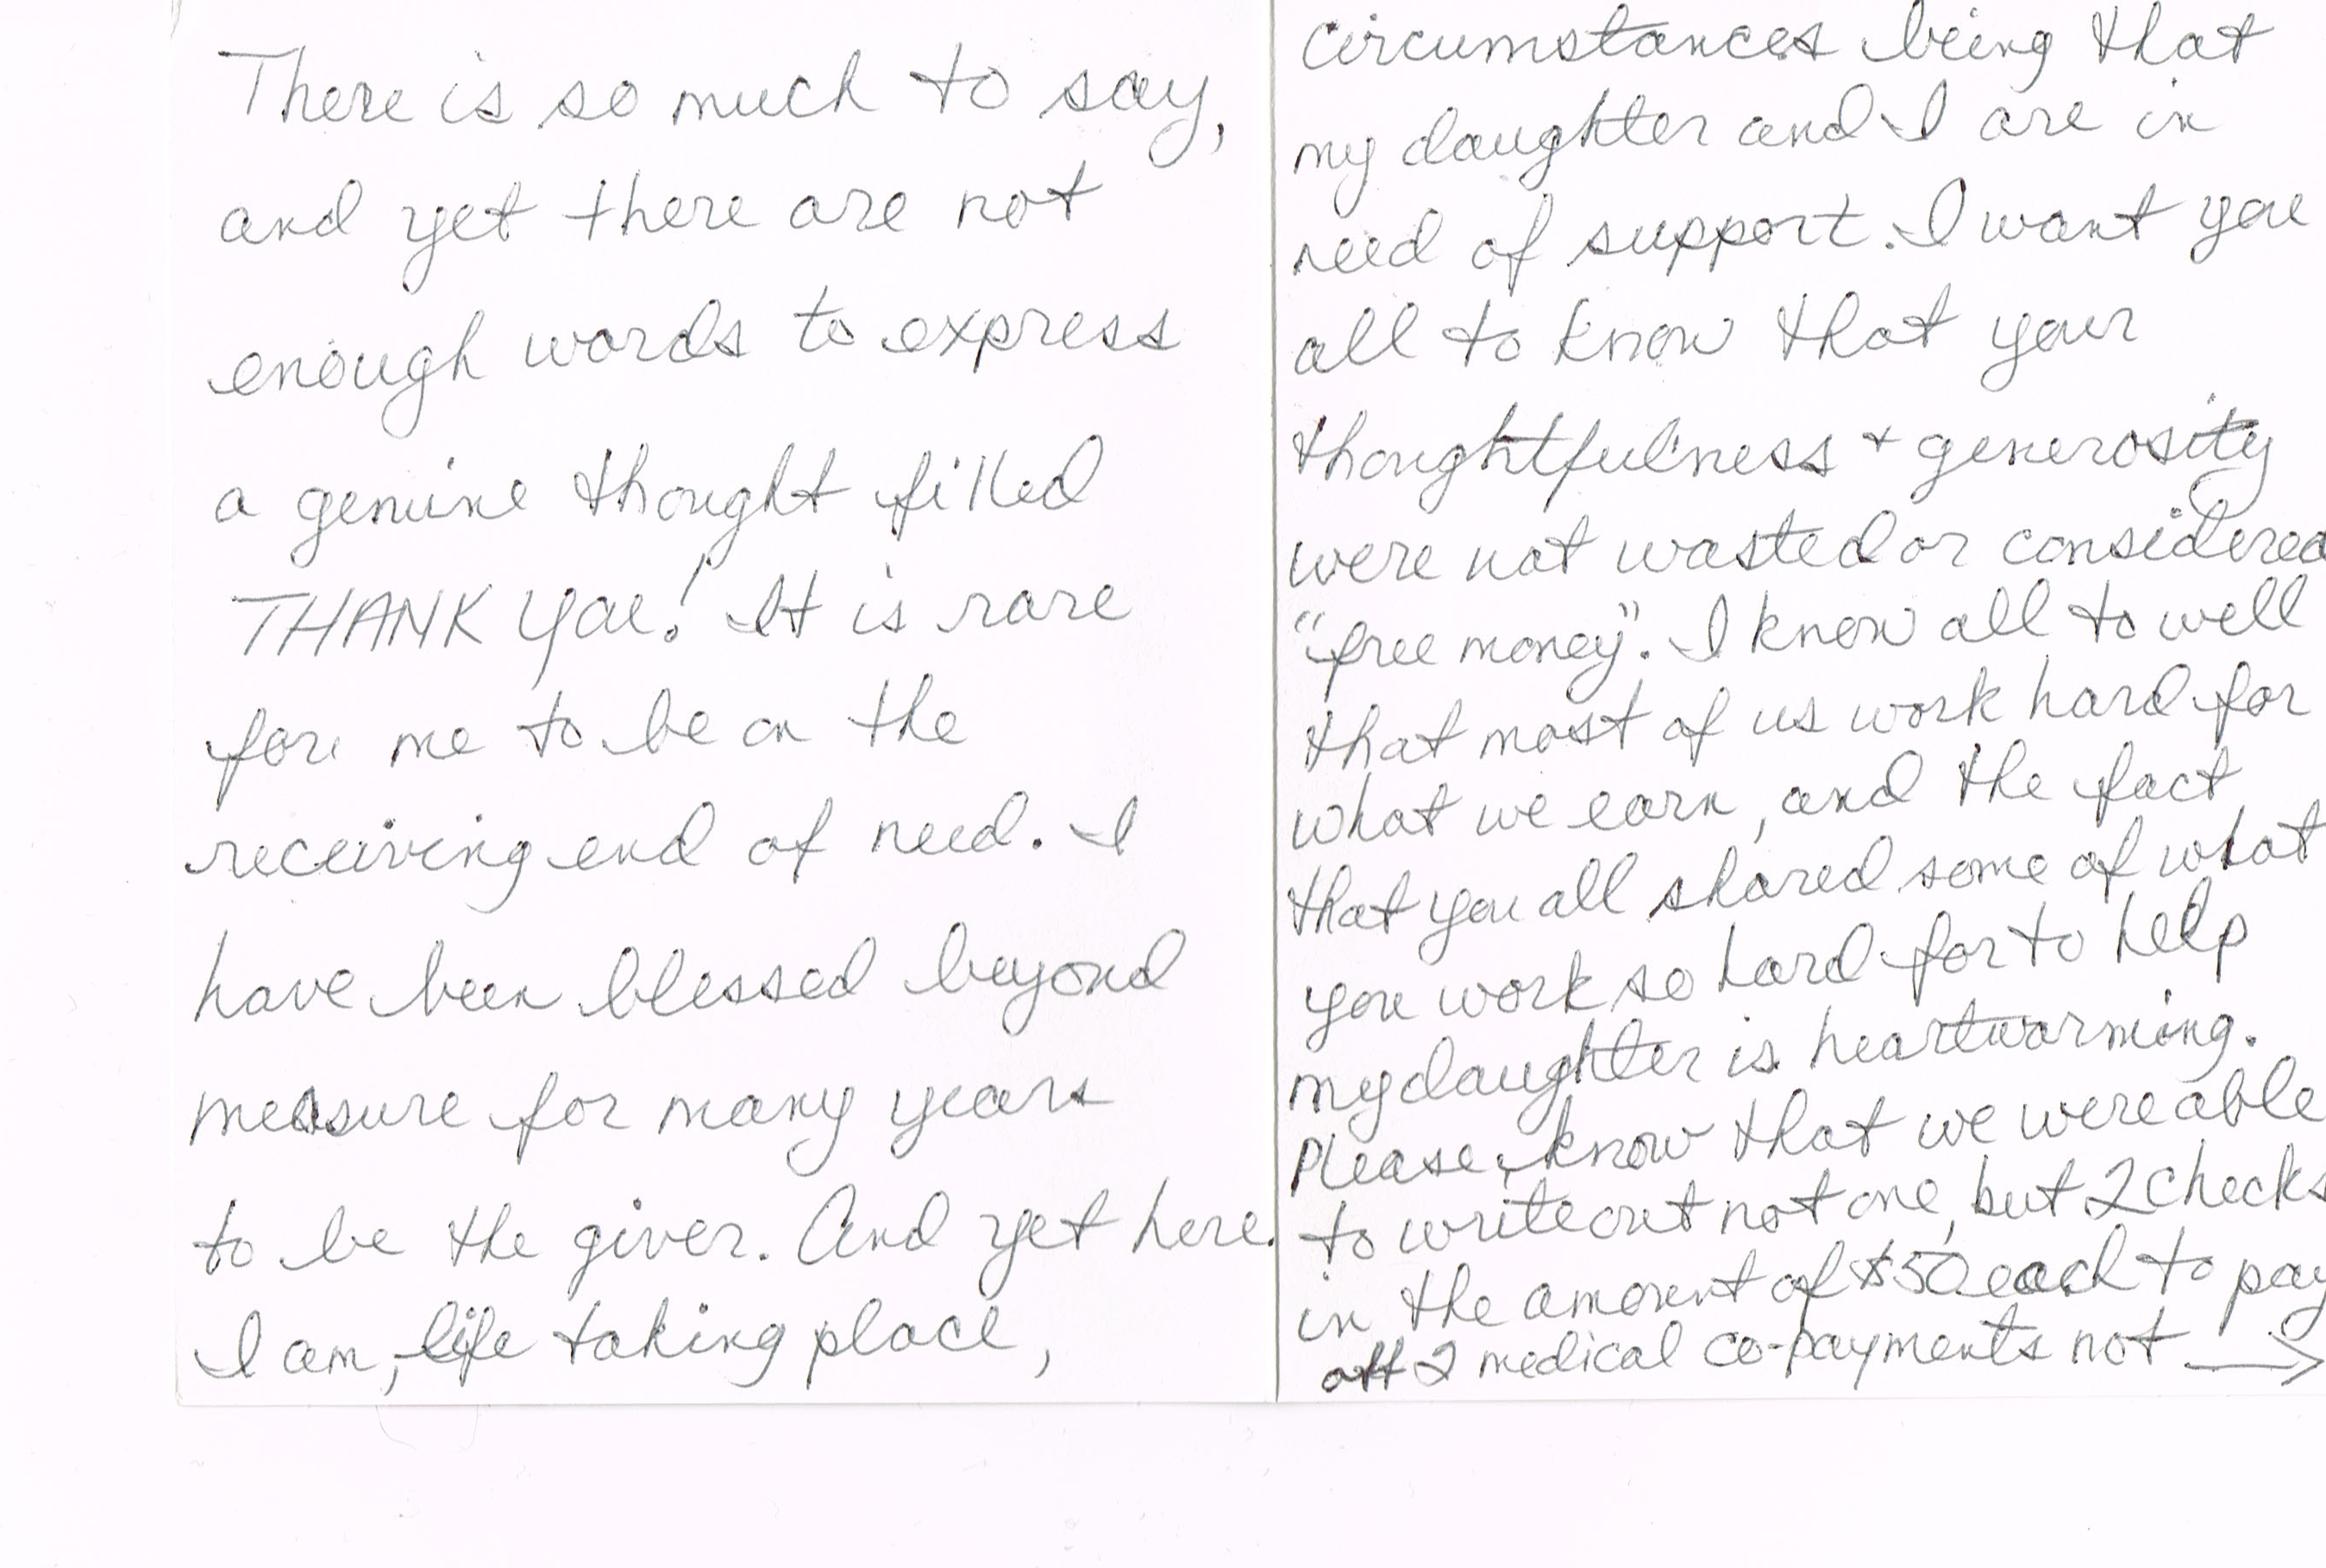 There is so much to say,
and yet there are not
enough words to express
a genuine thought filled
THANK YOU! It is rare
for me to be on the
receiving end of need. I
have been blessed beyond
measure for many years
to be the giver. And yet here
I am, life taking place,
circumstances being that
my daughter and I are in
need of support. I want you
all to know that your
thoughtfulness + generosity
were not wasted or considered
"free money". I know all to well
that most of us work hard for
what we earn, and the fact
that you all shared some of what
you work so hard for to help
my daughter is heartwarming.
Please, know that we were able
to write out not one, but 2 checks
in the amount of $50 each to pay
off 2 medical co-payments not →